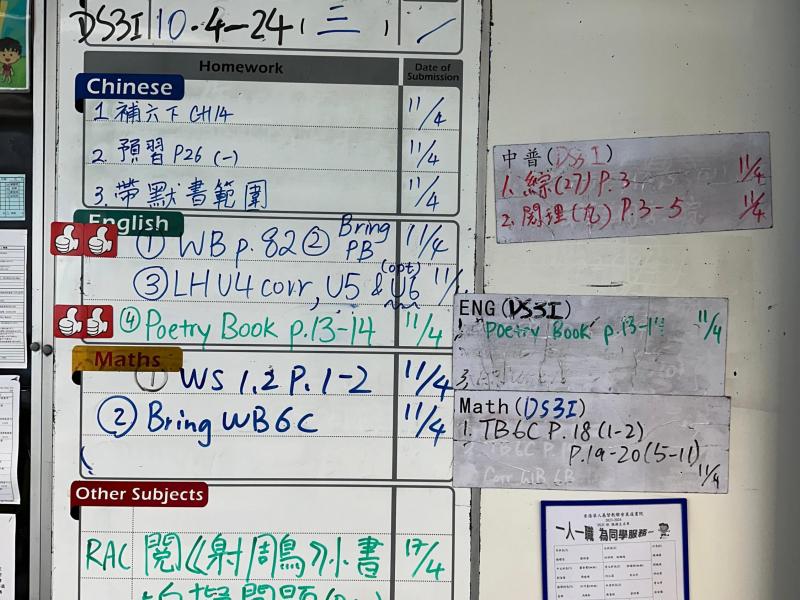 DS3I 10-4-24 (三)
Homework
Date of Submission
Chinese
1. 補六下 CH14 11/4
2. 預習 P26 (一) 11/4
3. 帶默書範圍 11/4
English
① WB p. 82 ② Bring PB 11/4
③ LH U4 corr, U5 & U6 (opt) 11/
④ Poetry Book p.13-14 11/4
Maths
① WS 1.2 P.1-2 11/4
② Bring WB6C 11/4
Other Subjects
RAC 閱《射鵰》小書 17/4
中普(DS3I)
1. 綜(27) P.3 11/4
2. 閱理(九) P.3-5 11/4
ENG (DS3I)
1. Poetry Book p.13-1 11/4
3.
Math (DS3I)
1. TB6C P.18 (1-2)
P.19-20 (5-11)
11/4
2. TB 6C P.
Corr WB 6B
2023-2024
一人一職 為同學服務